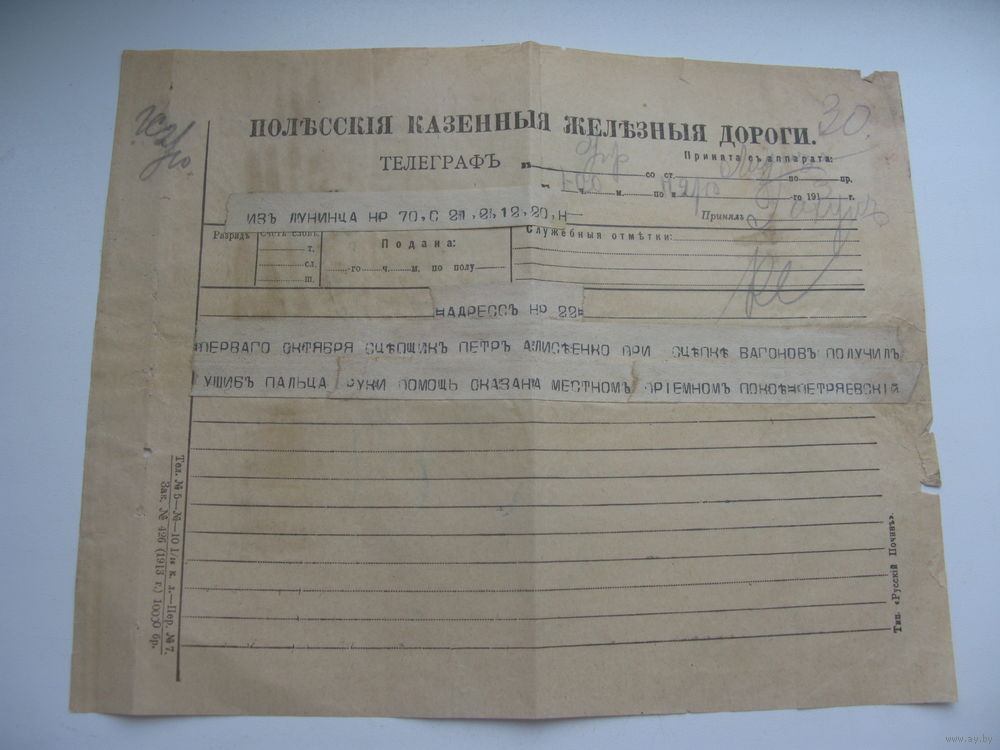 30.
ПОЛѢССКІЯ КАЗЕННЫЯ ЖЕЛѢЗНЫЯ ДОРОГИ.
ТЕЛЕГРАФЪ
Принята съ аппарата:
въ со ст. по пр.
ч. м. по п го 191 г.
Принялъ
ИЗЪ ЛУНИНЦА НР 70, С 21, 2, 12, 20, Н—
Разрядъ Счетъ словъ.
т.
сл.
ш.
Подана:
го ч. м. по полу
Служебныя отмѣтки:
=АДРЕССЪ НР 22=
ПЕРВАГО ОКТЯБРЯ СЦѢПЩИКЪ ПЕТРЪ АЛИСѢЕНКО ПРИ СЦѢПКѢ ВАГОНОВЪ ПОЛУЧИЛЪ
УШИБЪ ПАЛЬЦА РУКИ ПОМОЩЬ ОКАЗАНА МЕСТНОМЪ ПРІЕМНОМЪ ПОКОѢ=ПЕТРЯЕВСКІЙ
Тел. № 5—№—10 1/16 к. л.—Пер. № 7.
Зак. № 426 (1913 г.) 10000 бр.
Тип. «Русскій Починъ».
www.ay.by